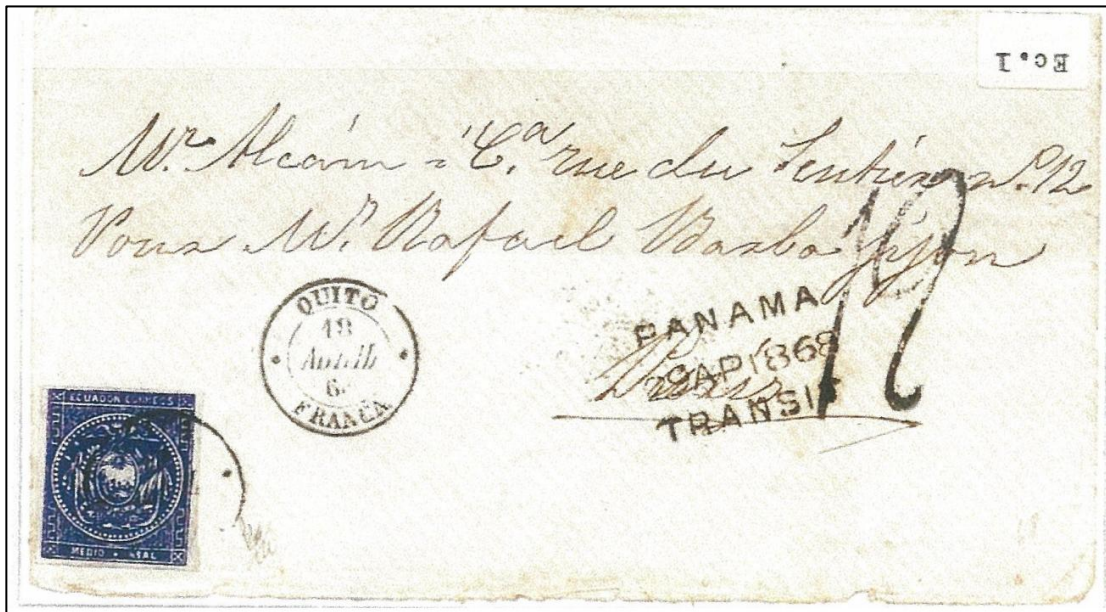 Ec.1
Mr. Alcám = C.a rue du Sentier no. 12
Pour Mr. Rafael Barba Jijon
Paris
QUITO
18
ABRIL
6.
FRANCA
PANAMA
9AP1868
TRANSIT
12
ECUADOR CORREOS
MEDIO REAL